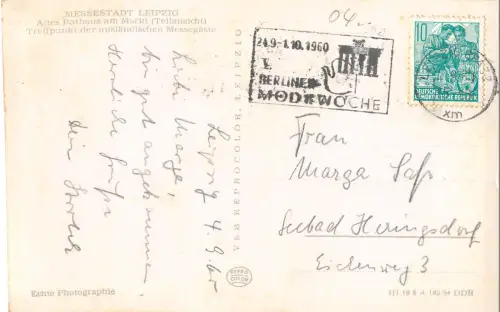 MESSESTADT LEIPZIG
Altes Rathaus am Markt (Teilansicht)
Treffpunkt der ausländischen Messegäste
04.
24.9.-1.10.1960
V.
BERLINER
MODEWOCHE
10
DEUTSCHE
DEMOKRATISCHE REPUBLIK
xm
Leipzig 4.9.60
Liebe Marga,
bin gut angekommen.
Herzliche Grüße
Dein
VEB REPROCOLOR LEIPZIG
Frau
Marga
Seebad Heringsdorf
Eichenweg 3
Echte Photographie
DDR